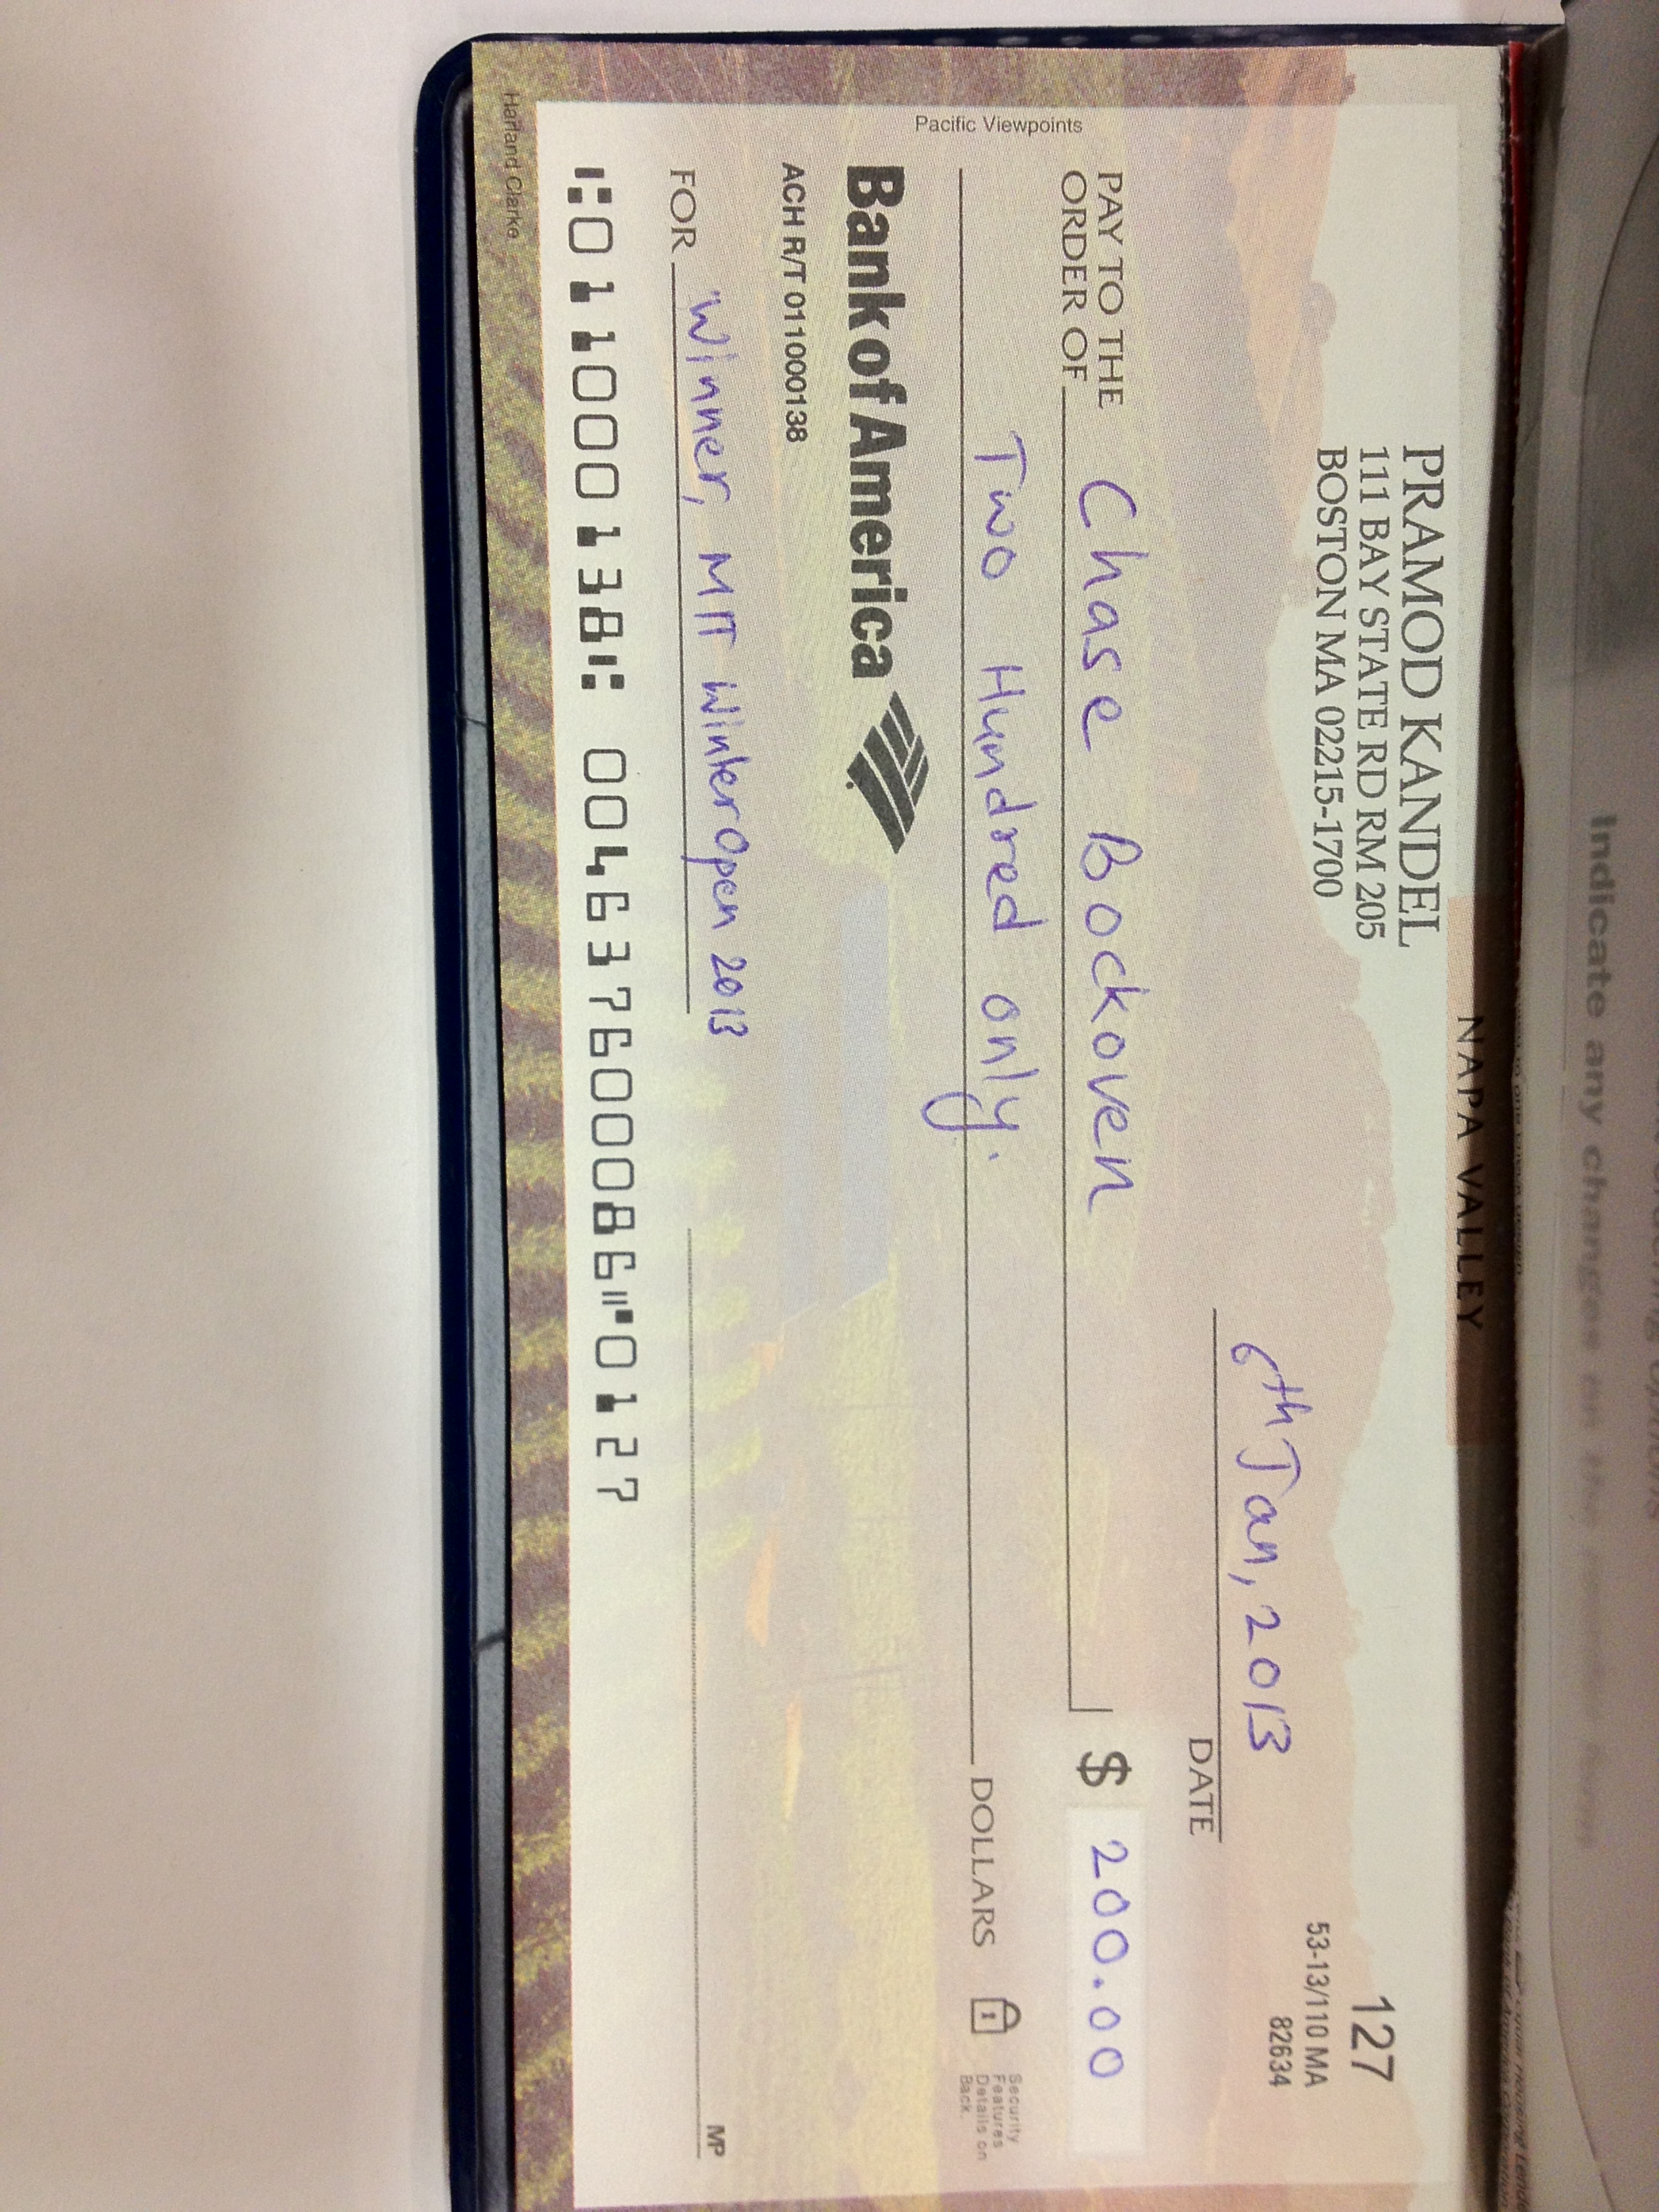 Indicate any changes
NAPA VALLEY
PRAMOD KANDEL
111 BAY STATE RD RM 205
BOSTON MA 02215-1700
127
53-13/110 MA
82634
6th Jan, 2013
DATE
PAY TO THE
ORDER OF Chase Bockoven $ 200.00
Two Hundred only. DOLLARS
Security
Features
Details on
Back.
Pacific Viewpoints
Bank of America
ACH R/T 011000138
FOR Winner, MIT Winter Open 2013
MP
⑆011000138⑆ 004637600086⑈0127
Harland Clarke